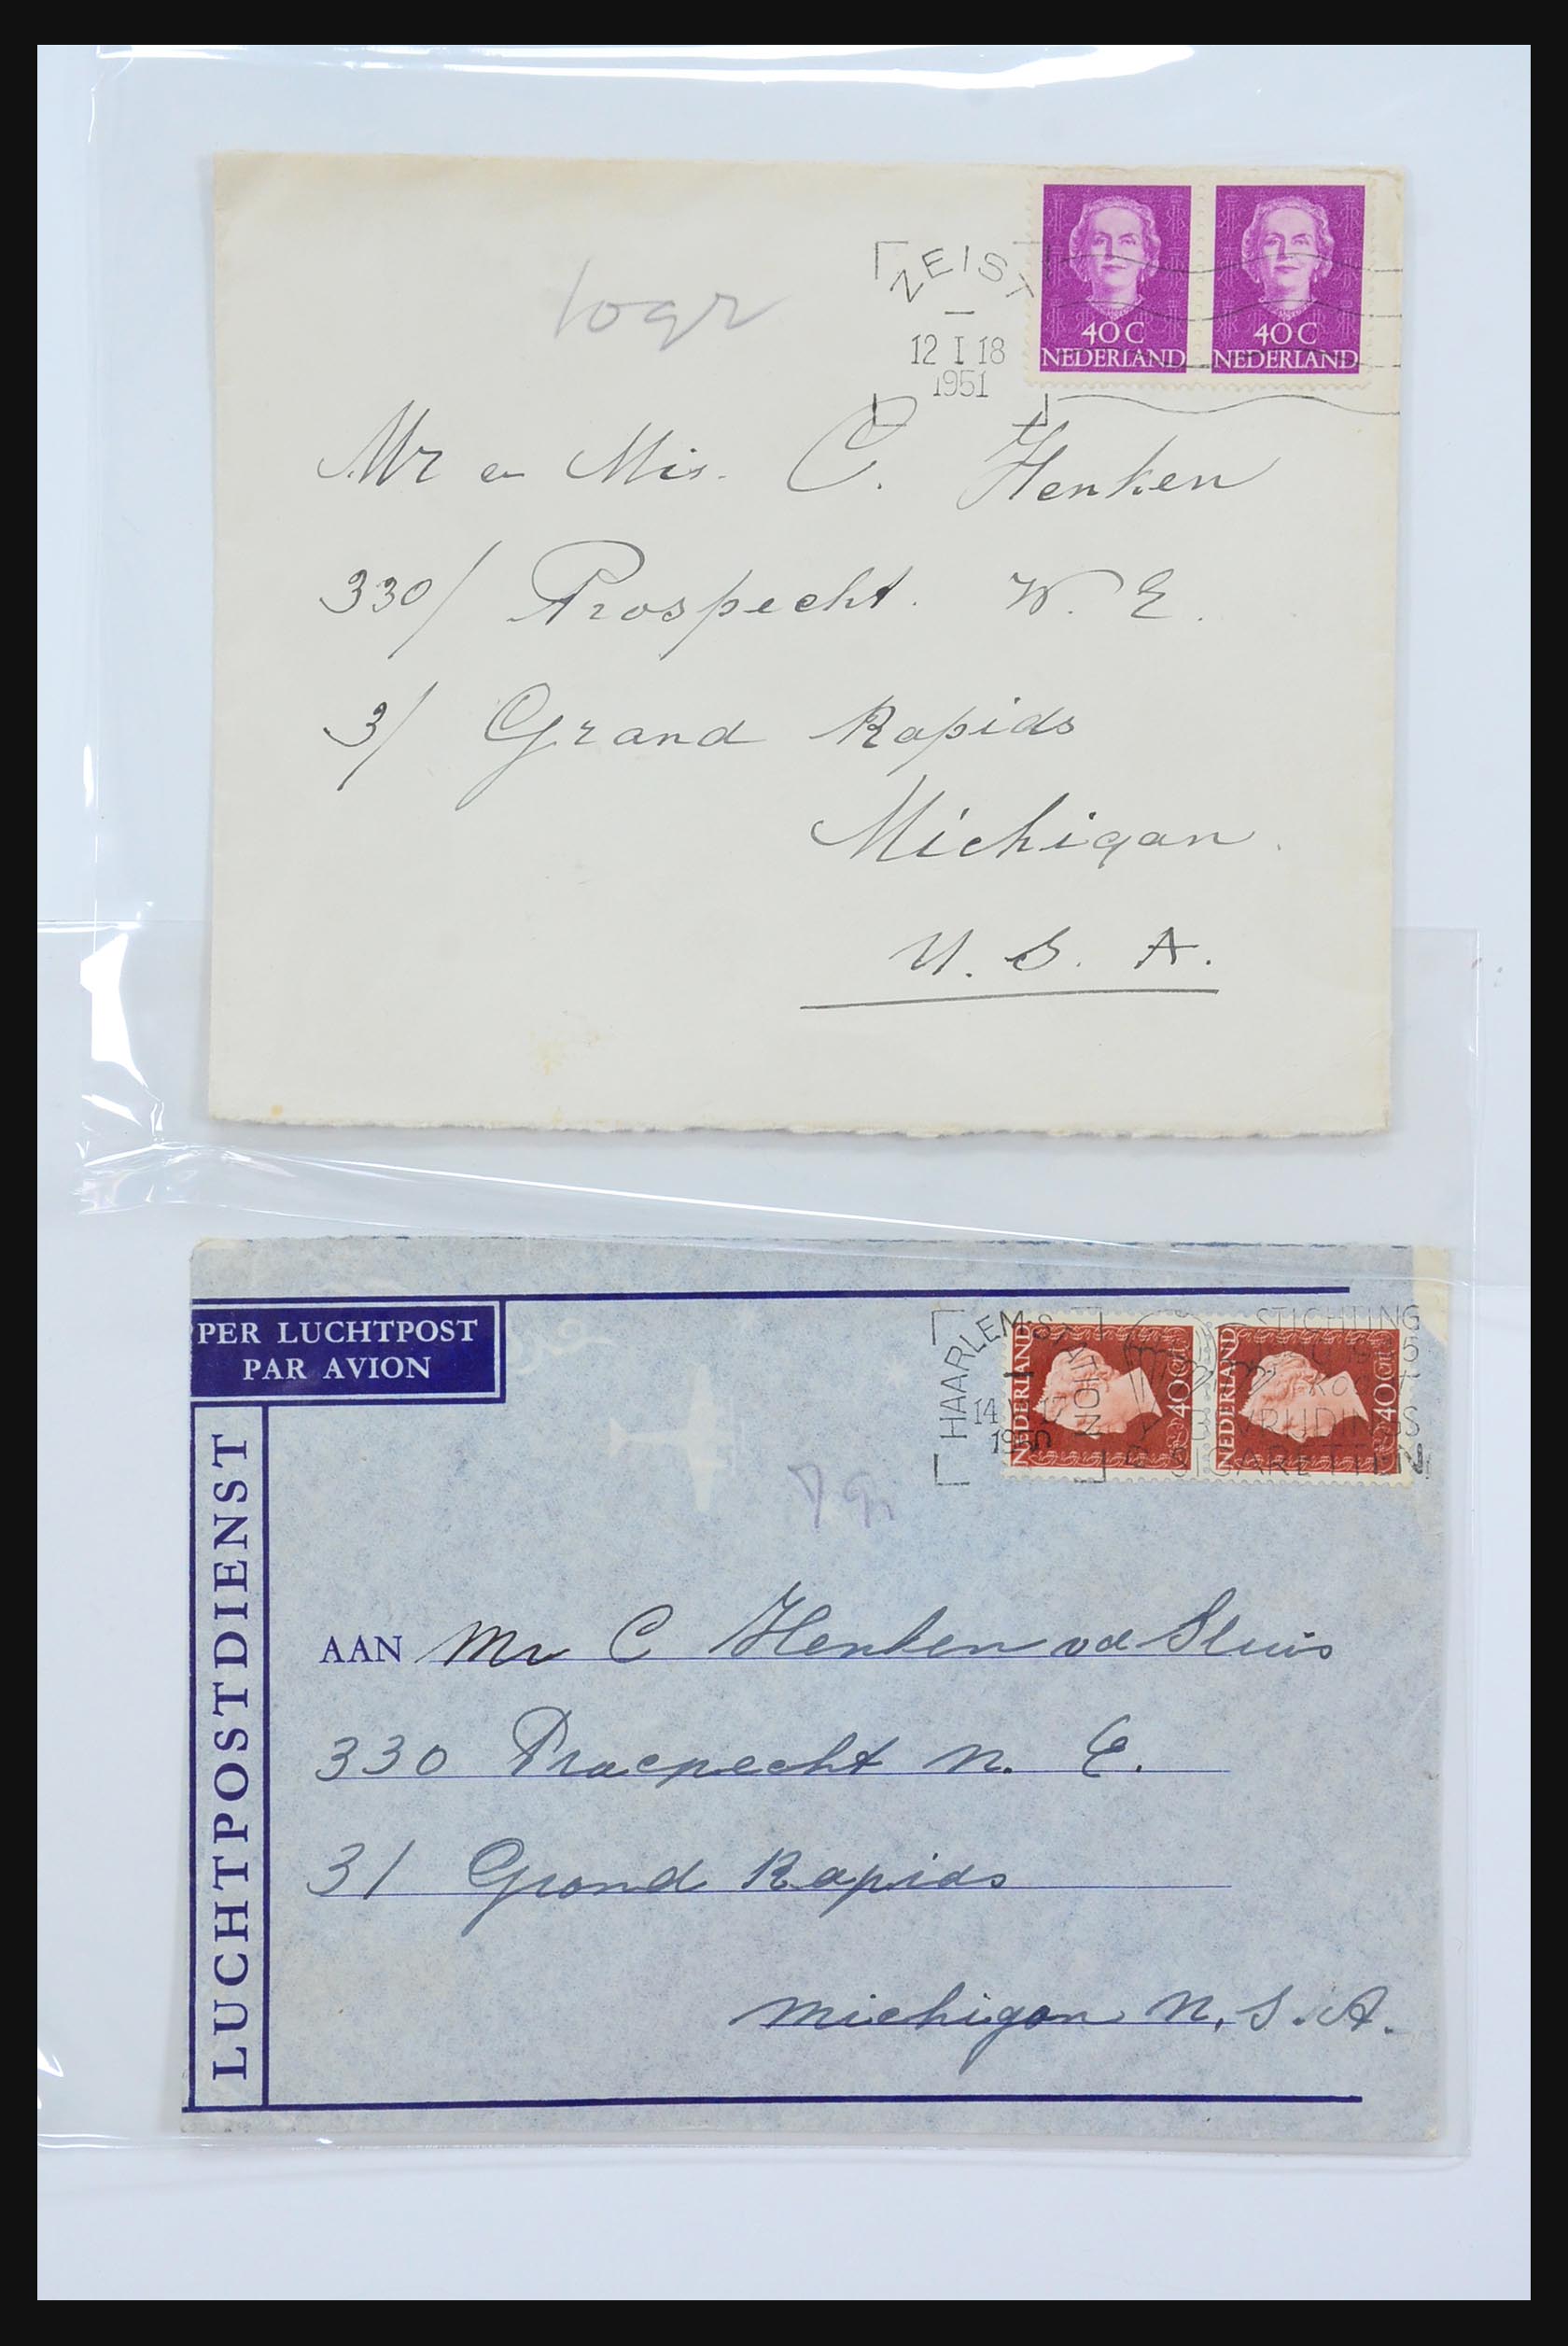 ZEIST
12 I 18
1951
40 C
NEDERLAND
40 C
NEDERLAND
10gr
Mr en Mis. C. Henken
330/ Prospecht. W. E.
3/ Grand Rapids
Michigan.
U. S. A.
PER LUCHTPOST
PAR AVION
LUCHTPOSTDIENST
HAARLEM-STATION
14
1950
NEDERLAND
40 CNT
NEDERLAND
40 CNT
STICHTING
SIGARETTEN
7 gr
AAN Mr C Henken vd Sluis
330 Pracpecht N. E.
31 Grand Rapids
Michigan U. S. A.